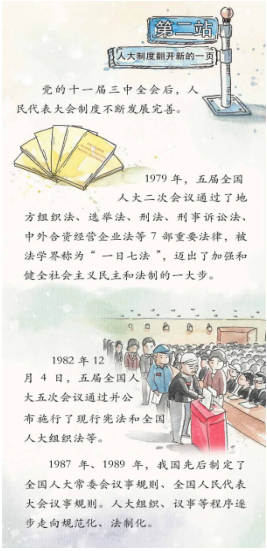 第二站
人大制度翻开新的一页
党的十一届三中全会后，人
民代表大会制度不断发展完善。
1979 年，五届全国
人大二次会议通过了地
方组织法、选举法、刑法、刑事诉讼法、
中外合资经营企业法等 7 部重要法律，被
法学界称为“一日七法”，迈出了加强和
健全社会主义民主和法制的一大步。
1982 年 12
月 4 日，五届全国人
大五次会议通过并公
布施行了现行宪法和全国
人大组织法等。
1987 年、1989 年，我国先后制定了
全国人大常委会议事规则、全国人民代表
大会议事规则。人大组织、议事等程序逐
步走向规范化、法制化。